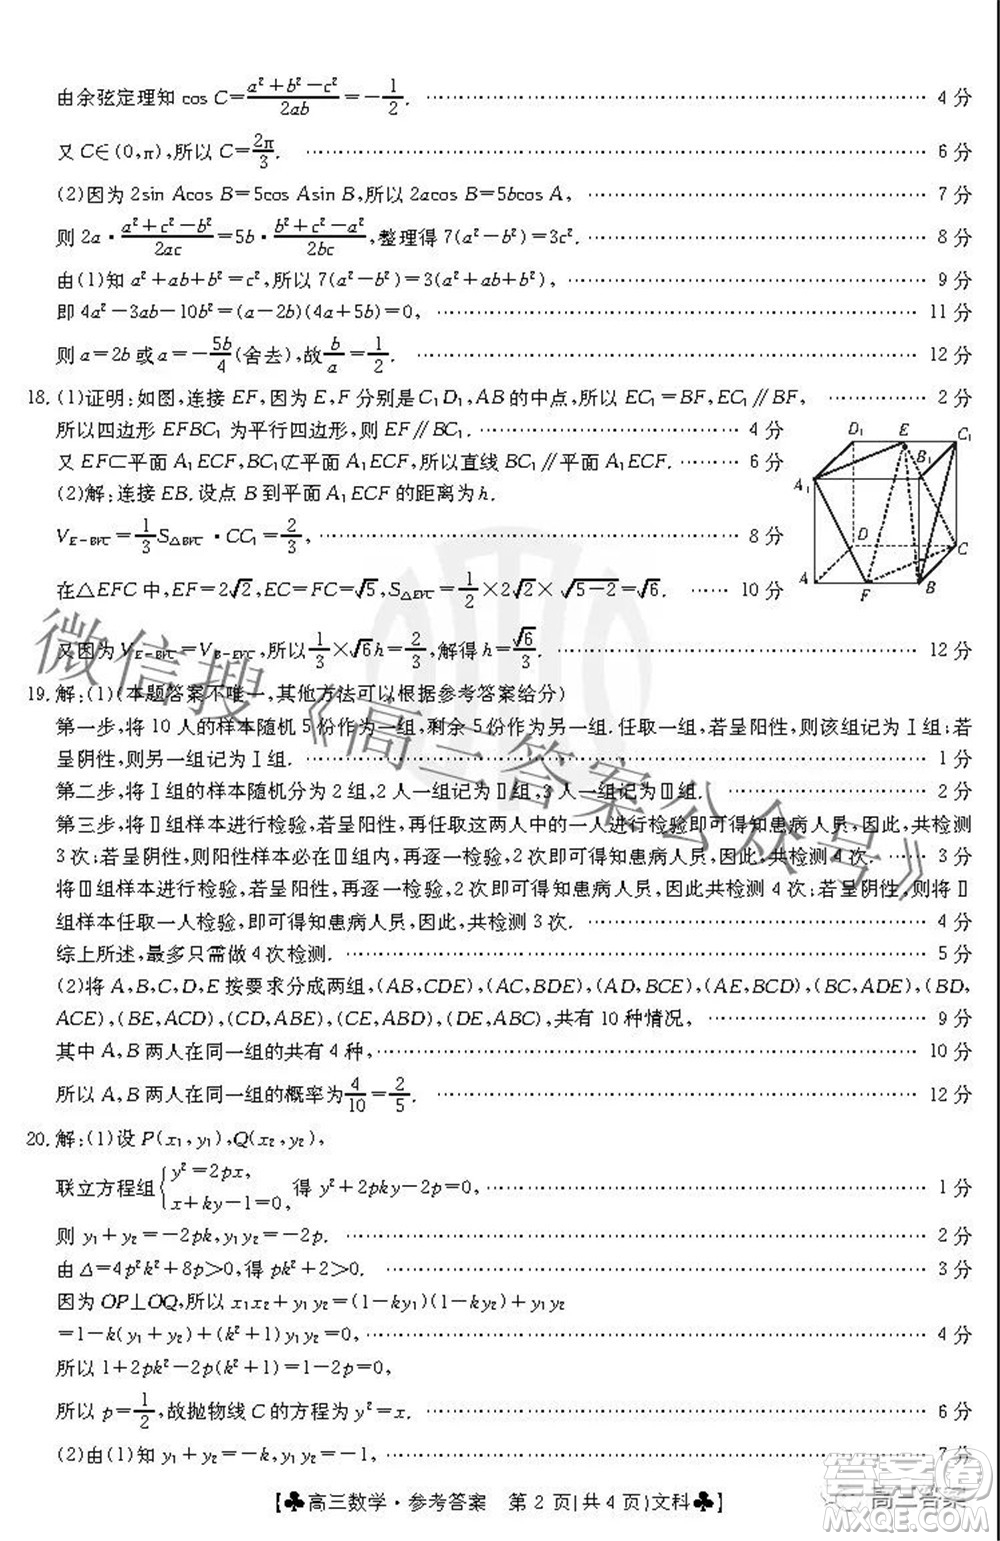 由余弦定理知 cos C=\frac{a²+b²-c²}{2ab}=-\frac{1}{2}. 4 分
又 C∈(0,π),所以 C=\frac{2π}{3}. 6 分
(2)因为 2sin Acos B=5cos Asin B,所以 2acos B=5bcos A, 7 分
则 2a·\frac{a²+c²-b²}{2ac}=5b·\frac{b²+c²-a²}{2bc},整理得 7(a²-b²)=3c². 8 分
由(1)知 a²+ab+b²=c²,所以 7(a²-b²)=3(a²+ab+b²), 9 分
即 4a²-3ab-10b²=(a-2b)(4a+5b)=0, 11 分
则 a=2b 或 a=-\frac{5b}{4}(舍去),故\frac{b}{a}=\frac{1}{2}. 12 分
18. (1)证明:如图,连接 EF,因为 E,F 分别是 C₁D₁,AB 的中点,所以 EC₁=BF,EC₁∥BF, 2 分
所以四边形 EFBC₁ 为平行四边形,则 EF∥BC₁. 4 分
又 EF⊂平面 A₁ECF,BC₁⊄平面 A₁ECF,所以直线 BC₁∥平面 A₁ECF. 6 分
(2)解:连接 EB.设点 B 到平面 A₁ECF 的距离为 h.
V_{E-BFC}=\frac{1}{3}S_{△BFC}·CC₁=\frac{2}{3}, 8 分
在△EFC 中,EF=2√2,EC=FC=√5,S_{△EFC}=\frac{1}{2}×2√2×√(5-2)=√6. 10 分
又因为 V_{E-BFC}=V_{B-EFC},所以\frac{1}{3}×√6h=\frac{2}{3},解得 h=\frac{√6}{3}. 12 分
D₁ E C₁
B₁
A₁
D C
A F B
19. 解:(1)(本题答案不唯一,其他方法可以根据参考答案给分)
第一步,将 10 人的样本随机 5 份作为一组,剩余 5 份作为另一组.任取一组,若呈阳性,则该组记为Ⅰ组;若
呈阴性,则另一组记为Ⅰ组. 1 分
第二步,将Ⅰ组的样本随机分为 2 组,2 人一组记为Ⅱ组,3 人一组记为Ⅲ组. 2 分
第三步,将Ⅱ组样本进行检验,若呈阳性,再任取这两人中的一人进行检验即可得知患病人员,因此,共检测
3 次;若呈阴性,则阳性样本必在Ⅲ组内,再逐一检验,即可得知患病人员,因此,共检测 4 次. 3 分
将Ⅲ组样本进行检验,若呈阳性,再逐一检验,2 次即可得知患病人员,因此,共检测 4 次;若呈阴性,则将Ⅱ
组样本任取一人检验,即可得知患病人员,因此,共检测 3 次. 4 分
综上所述,最多只需做 4 次检测. 5 分
(2)将 A,B,C,D,E 按要求分成两组,(AB,CDE),(AC,BDE),(AD,BCE),(AE,BCD),(BC,ADE),(BD,
ACE),(BE,ACD),(CD,ABE),(CE,ABD),(DE,ABC),共有 10 种情况, 9 分
其中 A,B 两人在同一组的共有 4 种, 10 分
所以 A,B 两人在同一组的概率为\frac{4}{10}=\frac{2}{5}. 12 分
20. 解:(1)设 P(x₁,y₁),Q(x₂,y₂),
联立方程组{y²=2px, x+ky-1=0, 得 y²+2pky-2p=0, 1 分
则 y₁+y₂=-2pk,y₁y₂=-2p. 2 分
由 Δ=4p²k²+8p>0,得 pk²+2>0. 3 分
因为 OP⊥OQ,所以 x₁x₂+y₁y₂=(1-ky₁)(1-ky₂)+y₁y₂
=1-k(y₁+y₂)+(k²+1)y₁y₂=0, 4 分
所以 1+2pk²-2p(k²+1)=0,
所以 p=\frac{1}{2},故抛物线 C 的方程为 y²=x. 6 分
(2)由(1)知 y₁+y₂=-k,y₁y₂=-1, 7 分
【♣高三数学·参考答案 第 2 页(共 4 页)文科♣】
微信搜《高三答案公众号》
高三答案
答案圈
MXQE.COM